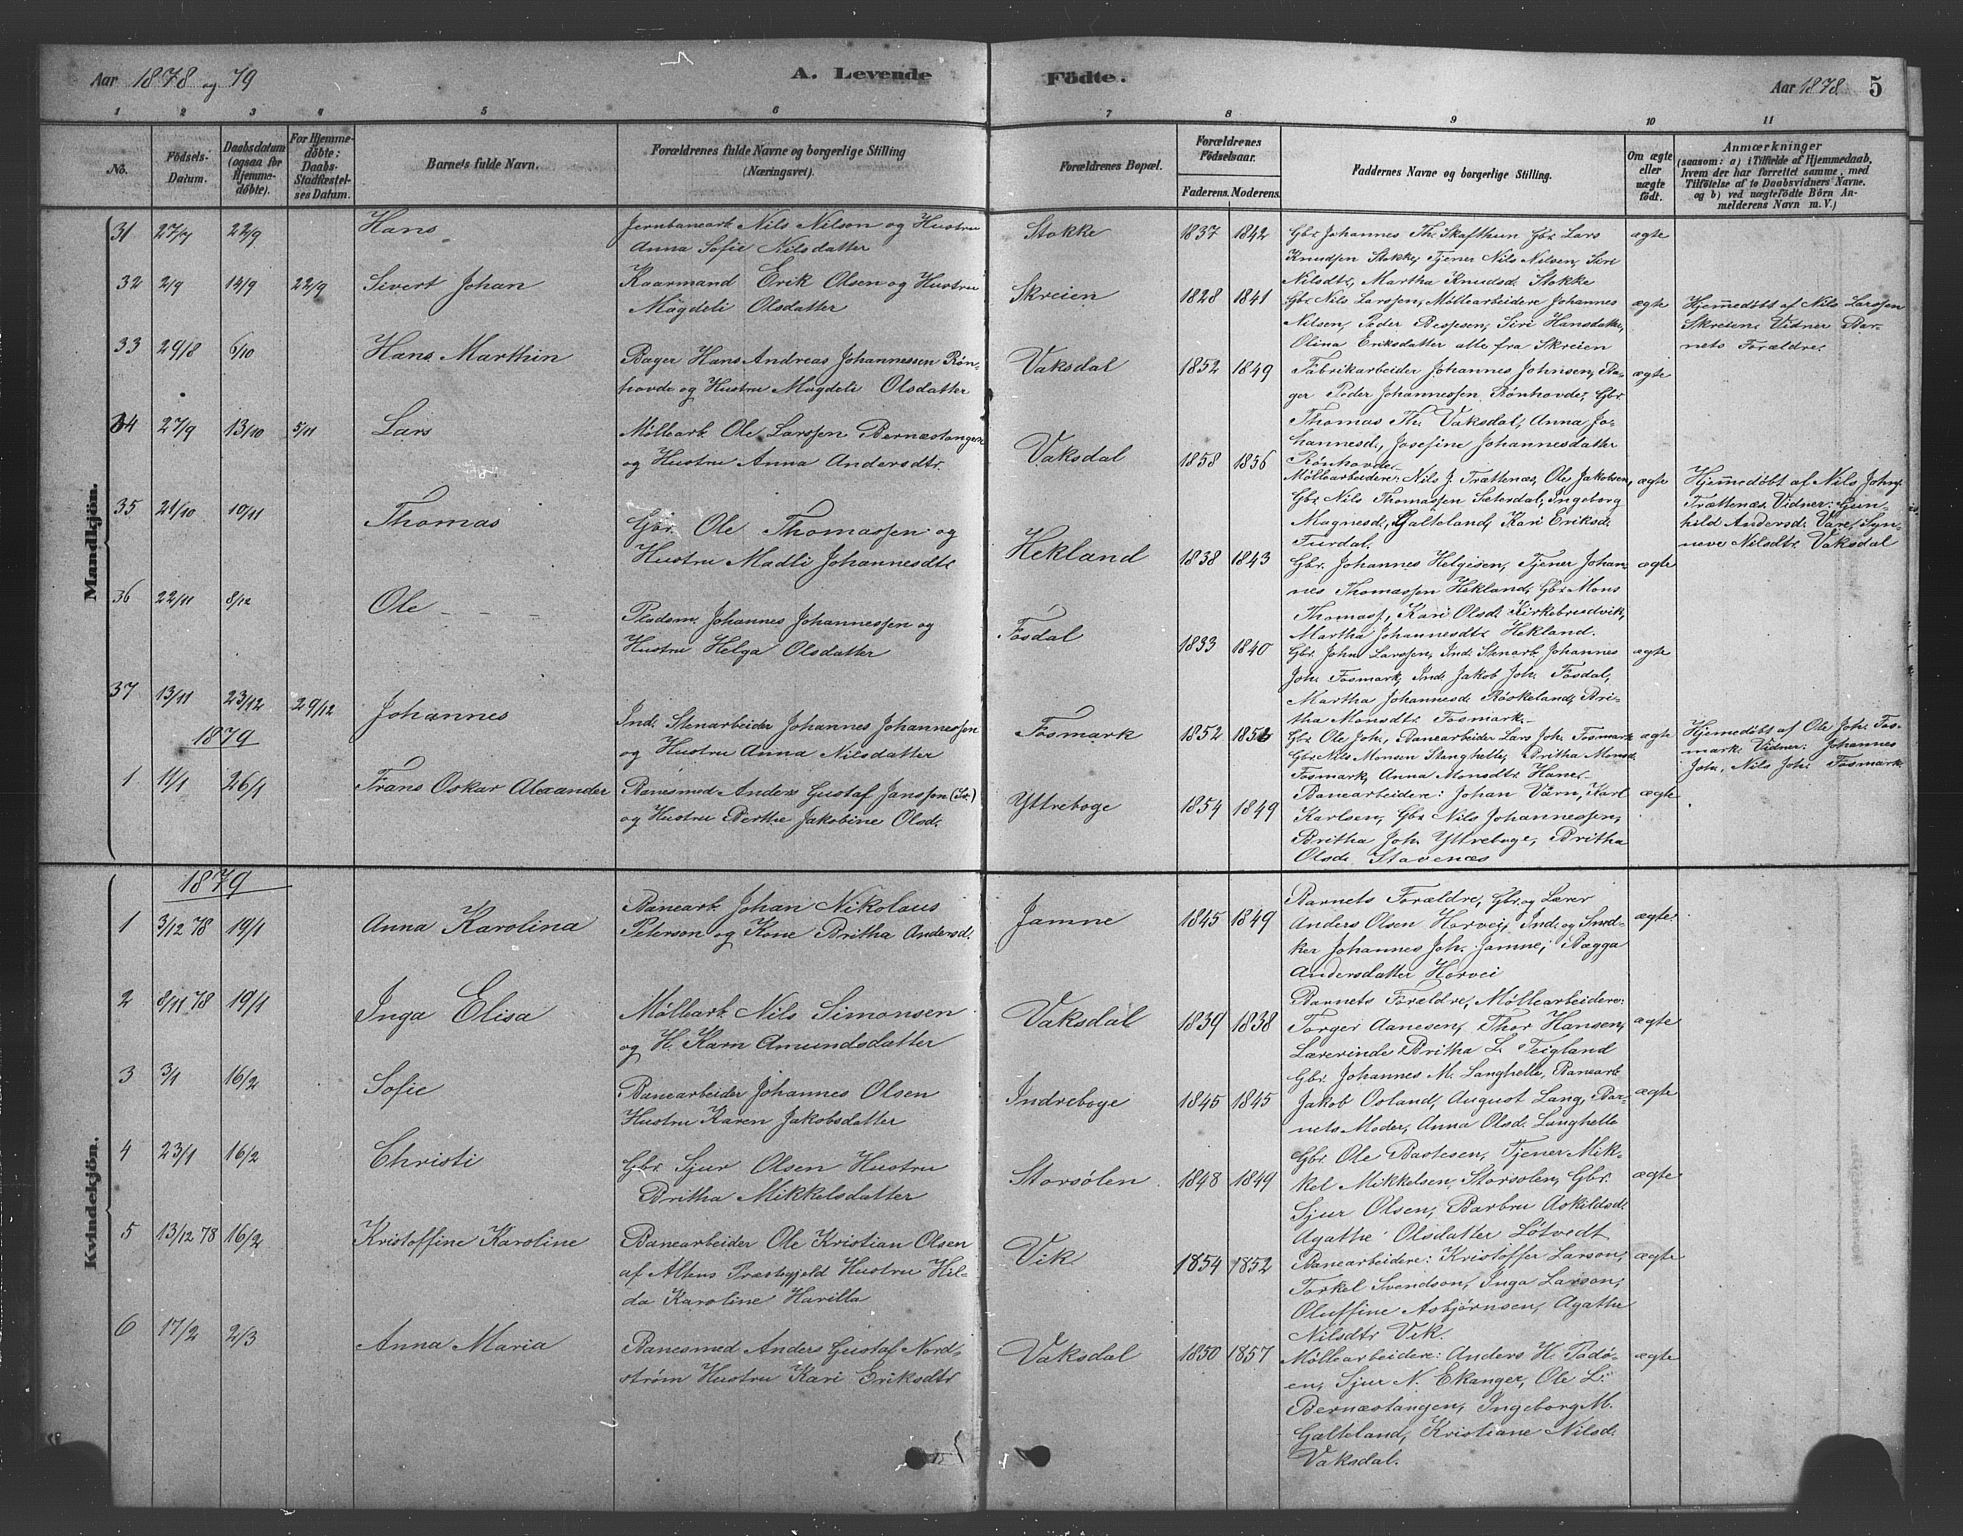 Aar 1878 og 79
A. Levende Födte.
Aar 1878 5
1 2 3 4 5 6 7 8 9 10 11
No.
Födsels-Datum.
Daabsdatum (ogsaa for Hjemmedöbte).
For Hjemmedöbte: Daabs-Stadfæstelses Datum.
Barnets fulde Navn.
Forældrenes fulde Navne og borgerlige Stilling (Næringsvei).
Forældrenes Bopæl.
Forældrenes Födselsaar.
Faderens. Moderens.
Faddernes Navne og borgerlige Stilling.
Om ægte eller uægte födt.
Anmærkninger
(saasom: a) i Tilfælde af Hjemmedaab, hvem der har forrettet samme, med Tilföielse af to Daabsvidners Navne. og b) ved uægtefödte Börn Anmelderens Navn m. V.)
Mandkjön.
31 27/7 22/9 Hans
Jernbanearb. Nils Nilson og Hustru
Anna Sofie Nilsdatter
Stokke 1837 1842
Gbr. Johannes Th. Skafthun Gbr. Lars
Knudsen Stokke, Tjener Nils Nilsen, Siri
Nilsdtr, Martha Knudsd. Stokke
ægte
32 2/9 14/9 22/9 Sivert Johan
Kaarmand Erik Olsen og Hustru
Magdeli Olsdatter
Skreien 1828 1841
Gbr. Nils Larssen, Möllearbeidere Johannes
Nilsen, Peder Bessesen, Siri Hansdatter,
Olina Eriksdatter alle fra Skreien
ægte
Hjemmedöbt af Nils Larssen
Skreien. Vidner Bar-
nets Forældre.
33 29/8 6/10 Hans Marthin
Bager Hans Andreas Johannessen Rön-
hovde og Hustru Magdeli Olsdatter
Vaksdal 1852 1849
Fabrikarbeider Johannes Johnsen, Ba-
ger Peder Johannessen Rönhovde, Gbr.
Thomas Th. Vaksdal, Anna Jo-
hannesd., Josefine Johannesdatter
Rönhovde
ægte
34 27/9 13/10 5/11 Lars
Möllearb. Ole Larssen Bernæstangen
og Hustru Anna Andersdtr.
Vaksdal 1858 1856
Möllearbeidere: Nils J. Trættenæs, Ole Jakobsen,
Gbr. Nils Thomassen Sæterdal, Ingeborg
Magnesd. Galteland, Kari Eriksd.
Furdal.
ægte
Hjemmedöbt af Nils Johns.
Trættenæs. Vidner: Gun-
hild Andersd. Vare, Syn-
neve Nilsdtr. Vaksdal
35 21/10 10/11 Thomas
Gbr. Ole Thomassen og
Hustru Madli Johannesdtr
Hekland 1838 1843
Gbr. Johannes Helgisen, Tjener Johan-
nes Thomassen Hekland, Gbr. Mons
Thomass., Kari Olsd. Kirkebrudvik,
Martha Johannesdtr. Hekland.
ægte
36 22/11 8/12 Ole
Pladsm. Johannes Johannessen og
Hustru Helga Olsdatter
Fosdal 1833 1840
Gbr. John Larssen, Ind. Stenarb. Johannes
Joh. Fosmark, Ind. Jakob Joh. Fosdal,
Martha Johannesd. Röskeland, Bri-
tha Monsdtr. Fosmark.
ægte
37 13/11 23/12 29/12 Johannes
Ind. Stenarbeider Johannes Johannessen
og Hustru Anna Nilsdatter
Fosmark 1852
Gbr. Ole Joh., Banearbeider Lars Joh. Fosmark
Gbr. Nils Monsen Stanghelle, Britha Monsd.
Fosmark, Anna Monsdtr. Hane.
ægte
Hjemmedöbt af Ole Joh. Fos-
mark. Vidner: Johannes
Joh., Nils Joh. Fosmark.
1879
1 1/1 26/1 Frans Oskar Alexander
Banesmed Anders Gustaf Jansson
og Hustru Berthe Jakobine Olsd.
Yttreboge 1854 1849
Banearbeidere: Johan Värn, Karl
Karlsen, Gbr. Nils Johannessen,
Britha Joh. Yttreboge, Britha
Olsd. Stavenæs
ægte
Kvindekjön.
1879
1 3/12 78 19/1 Anna Karolina
Banearb. Johan Nikolaus
Peterson og Kone Britha Andersd.
Jamne 1845 1849
Barnets Forældre, Gbr. og Lærer
Anders Olsen Horvei, Ind. og Sned-
ker Johannes Joh. Jamne, Bagga
Andersdatter Horvei
ægte
2 8/11 78 19/1 Inga Elisa
Möllearb. Nils Simonsen
og H. Karn Amundsdatter
Vaksdal 1839 1838
Barnets Forældre, Möllearbeidere:
Torger Aanesen, Thor Hansen,
Lærerinde Britha L. Teigland
ægte
3 3/1 16/2 Sofie
Banearbeider Johannes Olsen
Hustru Karen Jakobsdatter
Indreboge 1845 1845
Gbr. Johannes M. Langhelle, Banearb.
Jakob Osland, August Lang, Bar-
nets Moder, Anna Olsd. Langhelle
ægte
4 23/1 16/2 Christi
Gbr. Sjur Olsen Hustru
Britha Mikkelsdatter
Storsölen 1848 1849
Gbr. Ole Bastesen, Tjener Mik-
kel Mikkelsen, Storsolen, Gbr.
Sjur Olsen, Barbru Askildsd.
Agathe Olsdatter Lötvedt
ægte
5 13/12 78 16/2 Kristoffine Karoline
Banearbeider Ole Kristian Olsen
af Altens Præstegjeld Hustru Hil-
da Karoline Harilla
Vik 1854 1852
Banearbeidere: Kristoffer Larson,
Torkel Svendson, Inga Larson,
Oluffine Asbjörnsen, Agathe
Nilsdtr Vik.
ægte
6 17/2 2/3 Anna Maria
Banesmed Anders Gustaf Nord-
ström Hustru Kari Eriksdtr
Vaksdal 1850 1857
Möllearbeidere: Anders H. Fadö-
en, Sjur N. Ekanger, Ole L.
Bernæstangen, Ingeborg M.
Galteland, Kristiane Nilsd.
Vaksdal.
ægte